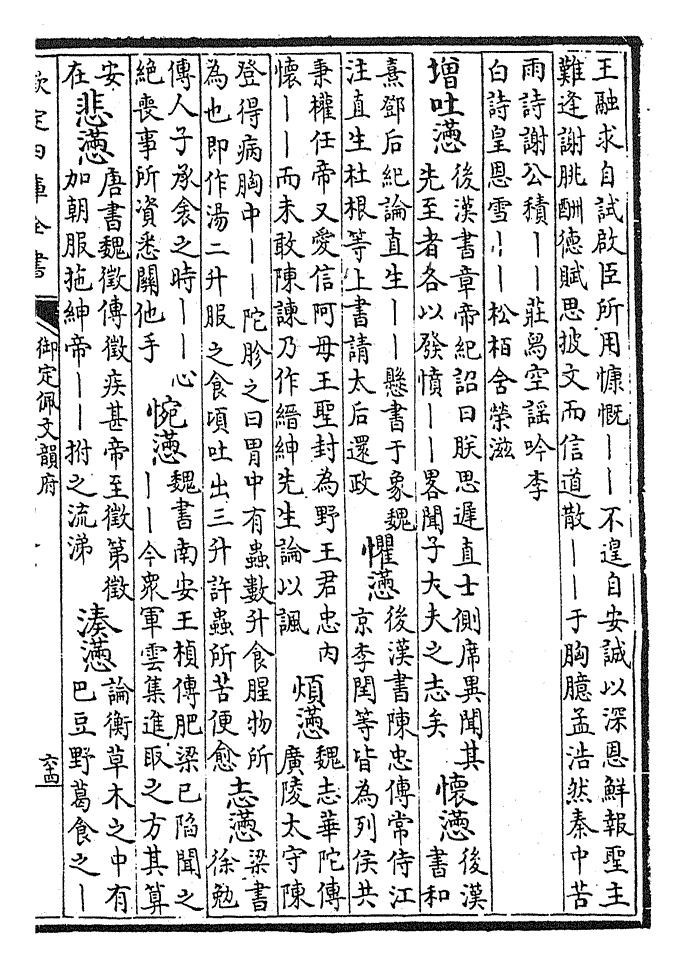 王融求自試啟臣所用慷慨丨丨不遑自安誠以深恩鮮報聖主
難逢謝朓酬德賦思披文而信道散丨丨于胸臆孟浩然秦中苦
雨詩謝公積丨丨莊舄空謠吟李
白詩皇恩雪丨丨松栢含榮滋
增吐懣
後漢書章帝紀詔曰朕思遲直士側席異聞其
先至者各以發憤丨丨畧聞子大夫之志矣
懷懣
後漢
書和
熹鄧后紀論直生丨丨懸書于象魏
注直生杜根等上書請太后還政
懼懣
後漢書陳忠傳常侍江
京李閏等皆為列侯共
秉權任帝又愛信阿母王聖封為野王君忠内
懷丨丨而未敢陳諫乃作縉紳先生論以諷
煩懣
魏志華陀傳
廣陵太守陳
登得病胸中丨丨陀胗之曰胃中有蟲數升食腥物所
為也即作湯二升服之食頃吐出三升許蟲所苦便愈
志懣
梁書
徐勉
傳人子承衾之時丨丨心
絶喪事所資悉關他手
惋懣
魏書南安王楨傳肥梁已陷聞之
丨丨今衆軍雲集進取之方其算
安
在
悲懣
唐書魏徵傳徵疾甚帝至徵第徵
加朝服拖紳帝丨丨拊之流涕
湊懣
論衡草木之中有
巴豆野葛食之丨
欽定四庫全書
御定佩文韻府
六十四